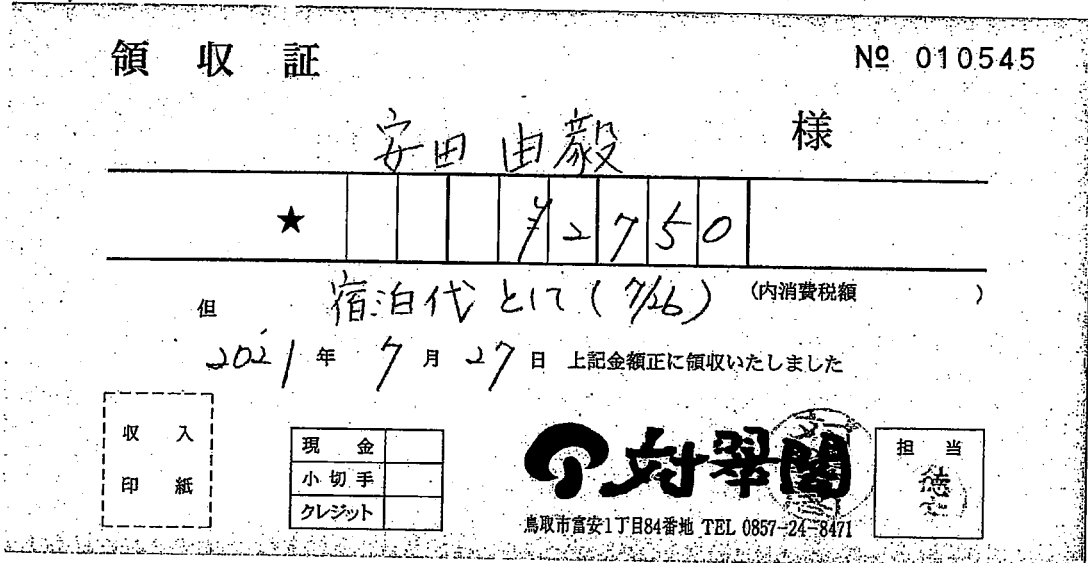 領収証 № 010545
安田由毅 様
★ ¥2750
但 宿泊代として(7/26) (内消費税額 )
2021年7月27日 上記金額正に領収いたしました
収入
印紙
現金
小切手
クレジット
対翠閣
担当
鳥取市富安1丁目84番地 TEL 0857-24-8471